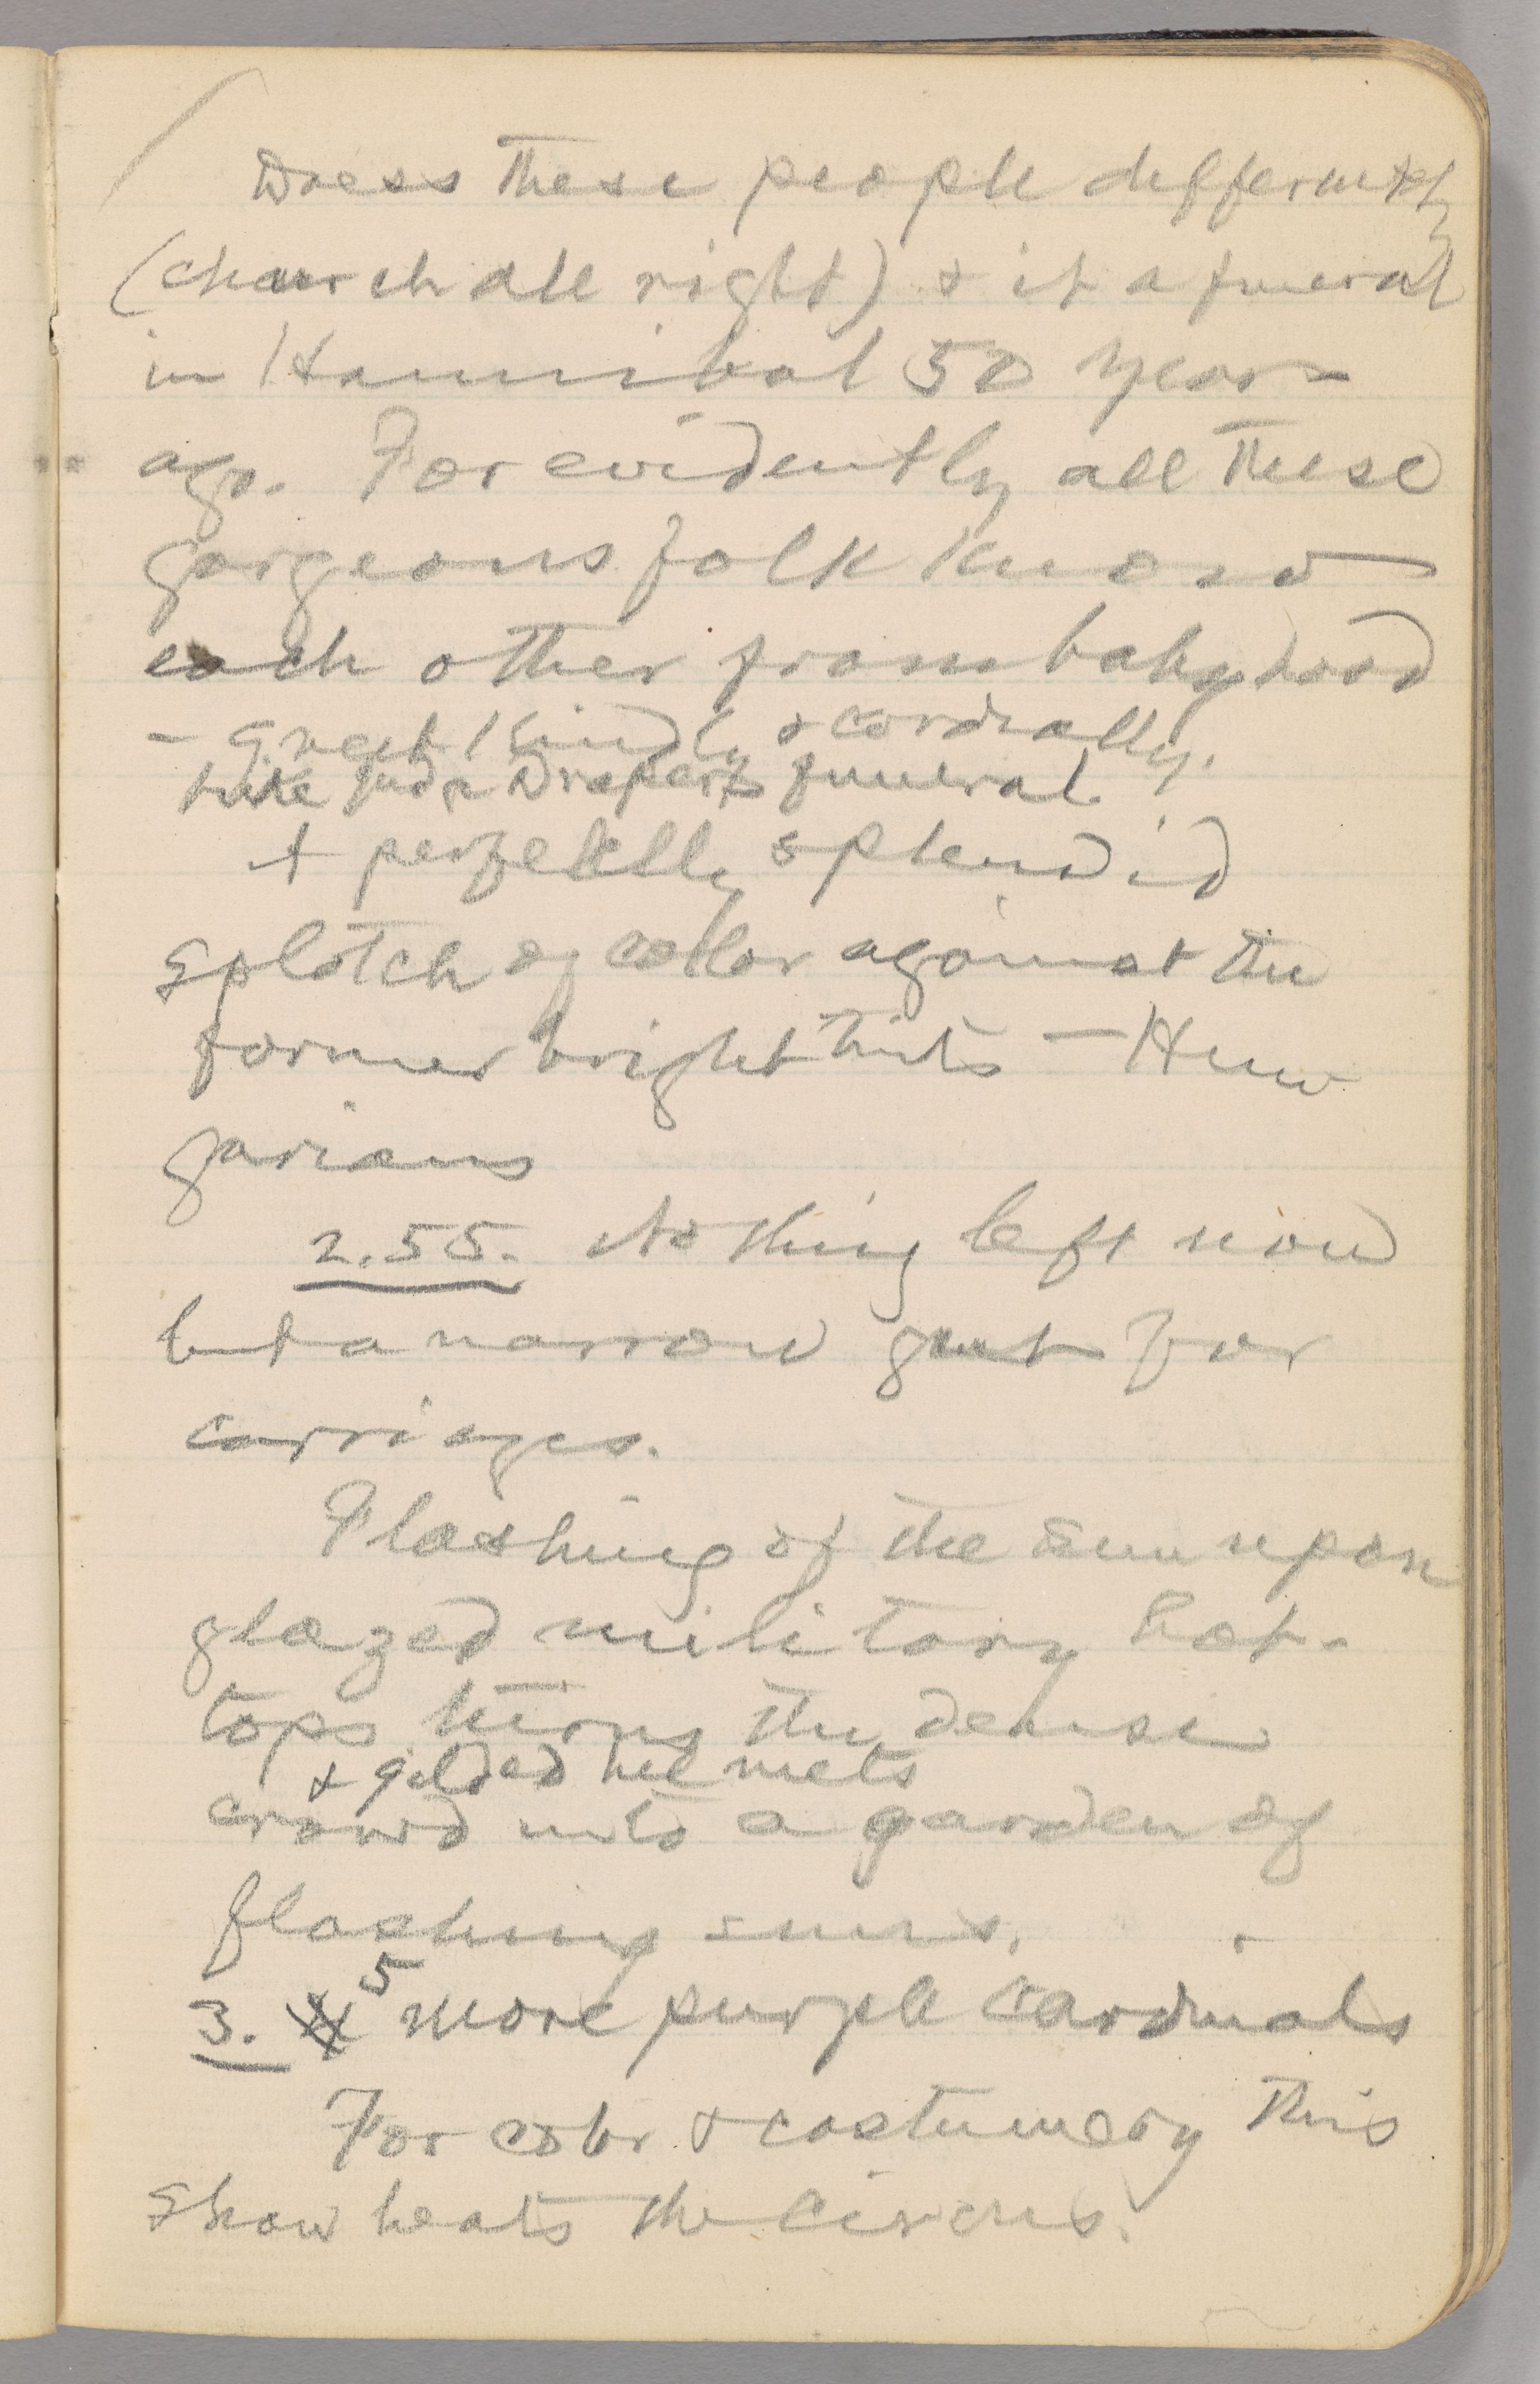 Dress these people differently
(church all right) & it a funeral
in Hannibal 50 years
ago. For evidently all these
gorgeous folk know
each other from babyhood
- greet kindly & cordially.
like Judge Draper's funeral.
A perfectly splendid
splotch of color against the
former bright tints — Hun
garians
2.55. Nothing left now
but a narrow gut for
carriages.
Flashing of the sun upon
glazed military hat-
tops turns the dense
& gilded helmets
crowd into a garden of
flashing suns.
5
3. more purple cardinals
For color & costumery this
show beats the circus.